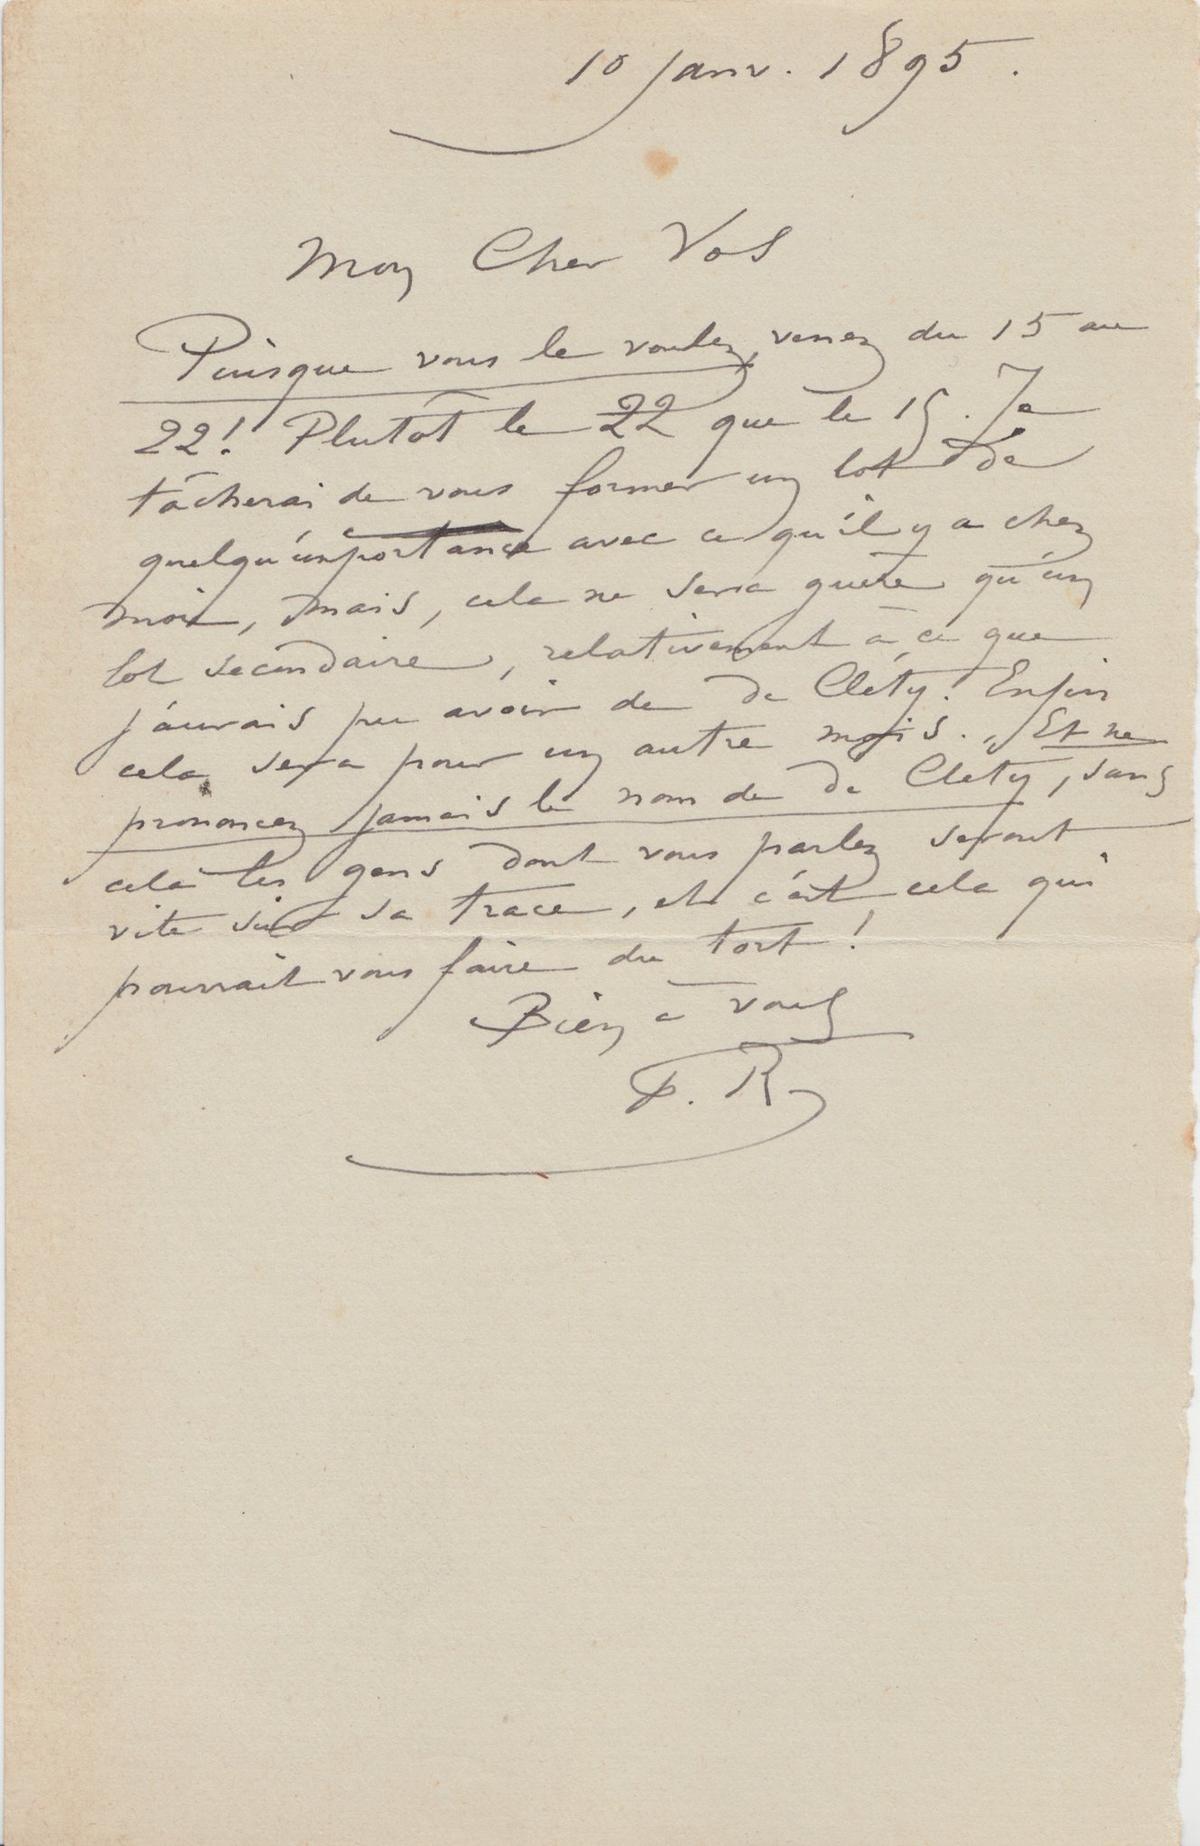 10 Janv. 1895.
Mon Cher Vos
Puisque vous le voulez, venez du 15 au
22! Plutôt le 22 que le 15. Je
tâcherai de vous former un lot de
quelqu'importance avec ce qu'il y a chez
moi, mais, cela ne sera guère qu'un
lot secondaire, relativement à ce que
j'aurais pu avoir de de Cléty. Enfin
cela sera pour un autre mois. Et ne
prononcez jamais le nom de de Cléty, sans
cela les gens dont vous parlez seront
vite sur sa trace, et c'est cela qui
pourrait vous faire du tort!
Bien à vous
F. R.